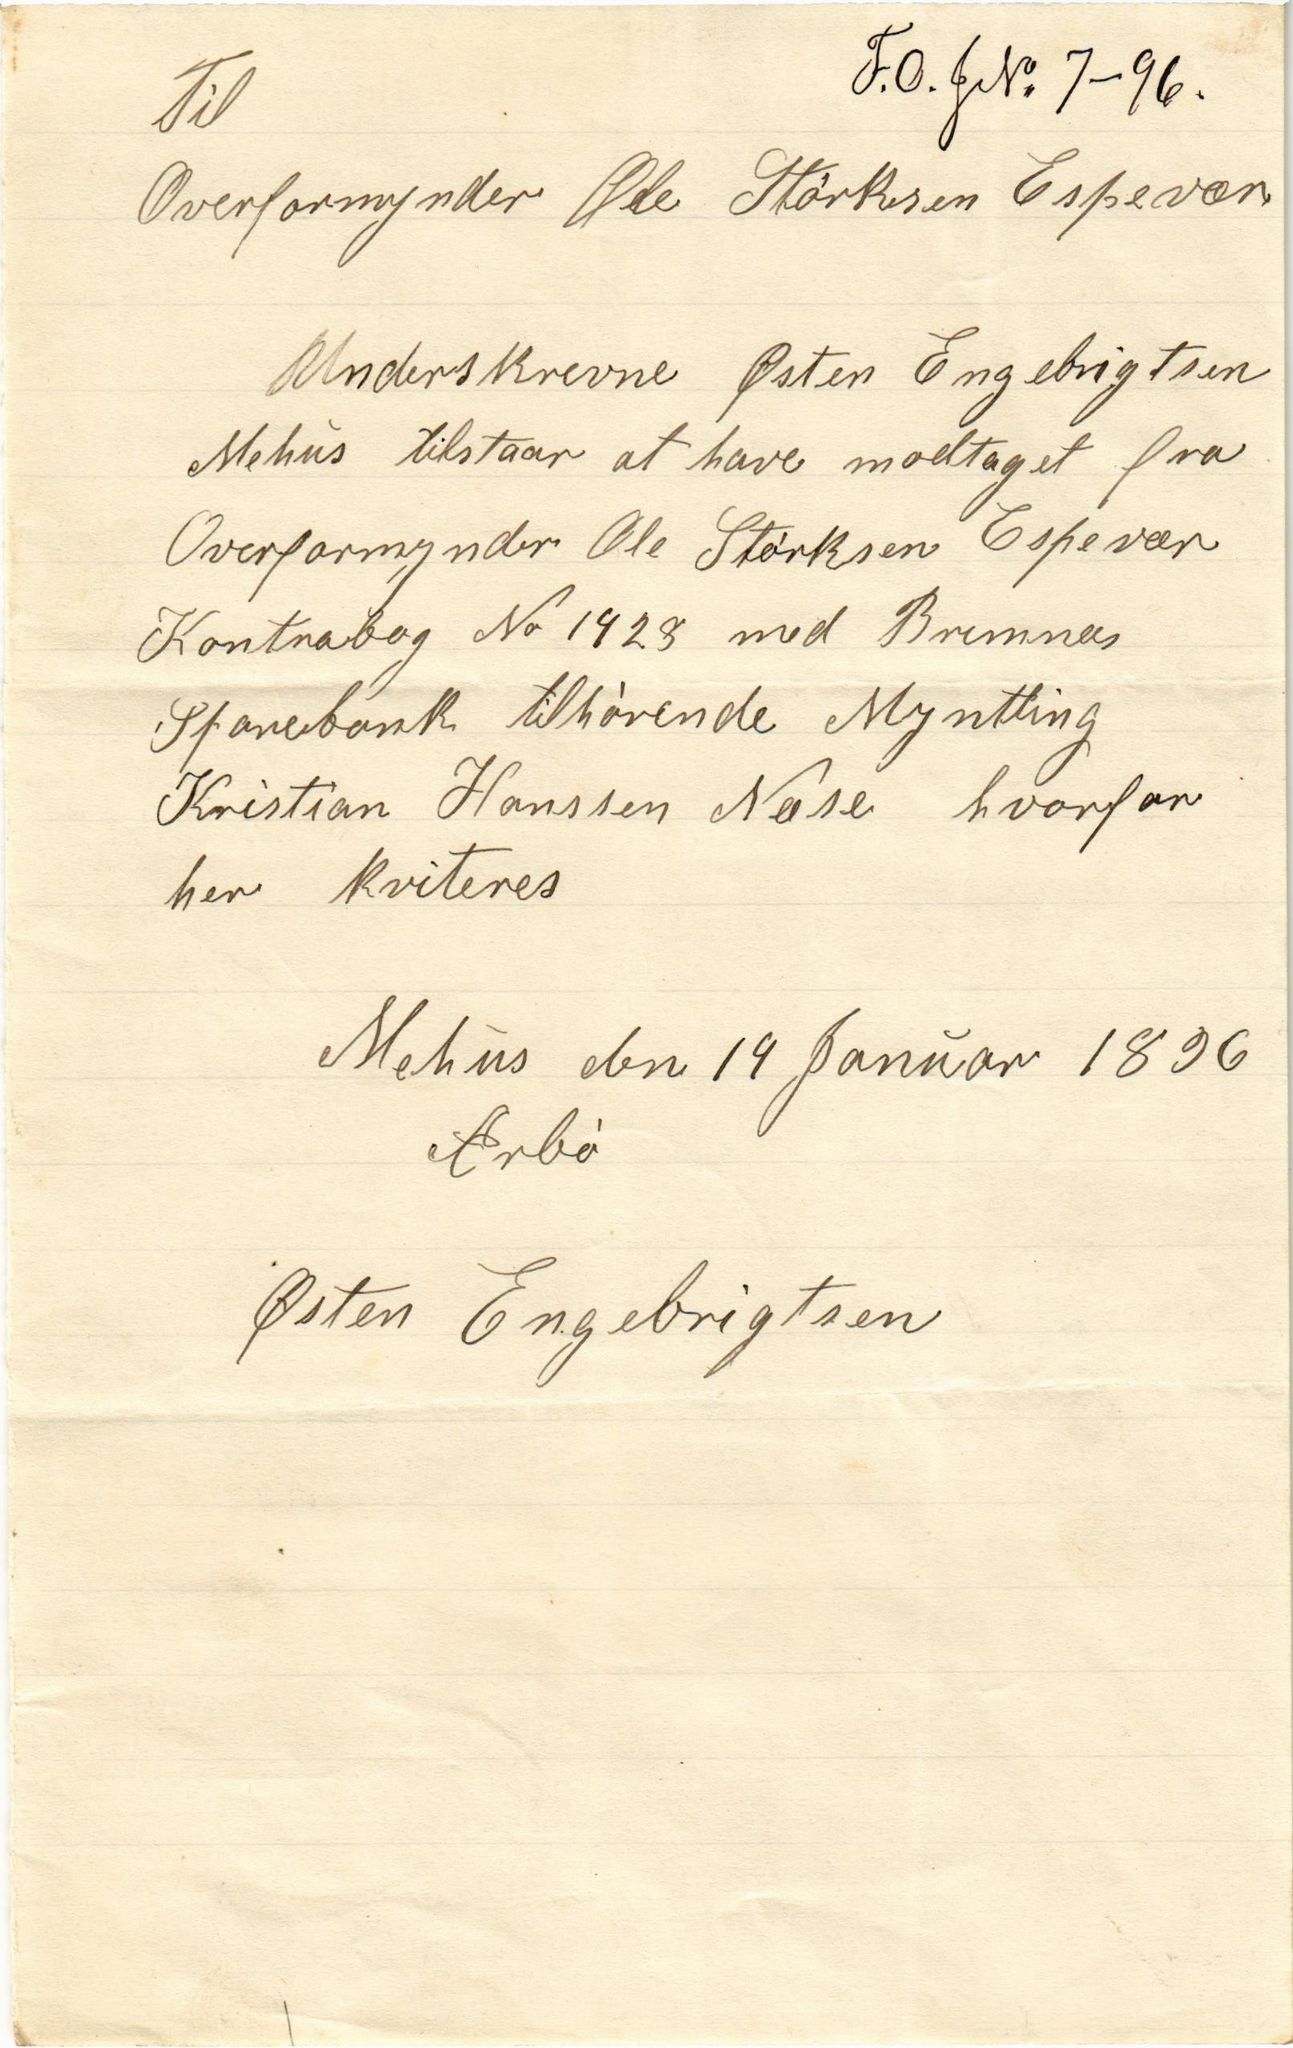 F.O.J№. 7-96.
Til
Overformynder Ole Störksen Espevær
Underskrevne Østen Engebrigtsen
Mehus tilstaar at have modtaget fra
Overformynder Ole Störksen Espevær
Kontrabog No 1928 med Bremnæs
Sparebank tilhörende Myntling
Kristian Hanssen Næse hvorfor
her kviteres
Mehus den 19 Januar 1896
Ærbö
Østen Engebrigtsen